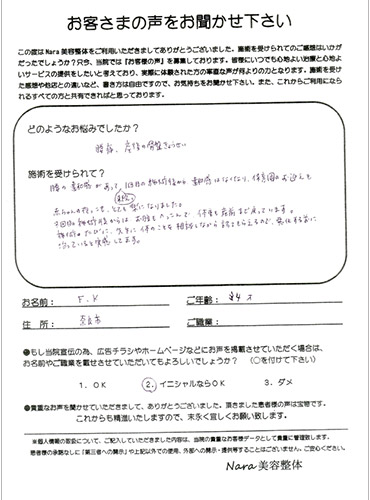 お客さまの声をお聞かせ下さい
この度はNara美容整体をご利用いただきましてありがとうございました。施術を受けられてのご感想はいかが
だったでしょうか？只今、当院では『お客様の声』を募集しております。皆様にいつでも心地よいお声と心地よ
いサービスの提供をしたいと考えており、実際に体験された方の率直な声が何よりの力となります。施術を受け
た感想や他店との違いなど、書き方は自由ですので、お気持ちをお聞かせ下さい。また、これからご利用になら
れるすべての方と共有できればと思っております。
どのようなお悩みでしたか？
腰痛、産後の骨盤きょうせい
施術を受けられて？
腰の違和感があって、1回目の施術後から違和感はなくなり、保育園のお迎えも
赤ちゃんの抱っこも、とても楽になりました。
施術のたびに、先生に体のことを相談しながら
お名前： F.K ご年齢： 34 才
住 所： 奈良市 ご職業：
●もし当院宣伝の為、広告チラシやホームページなどにお声を掲載させていただく場合は、
お名前やご職業を載せさせていただいてもよろしいでしょうか？（○を付けて下さい）
1．OK 2．イニシャルならOK 3．ダメ
●貴重なお声を聞かせていただきまして、ありがとうございました。頂きました患者様の声は宝物です。
これからも精進いたしますので、末永く宜しくお願い致します。
※個人情報の取扱について、ご記入していただきました内容は、当院の貴重なお客様データとして責重に管理致します。
患者様の承諾なしに「第三者への開示」や上記以外での使用、外部への開示・提供等することはございません。ご安心ください。
Nara 美容整体